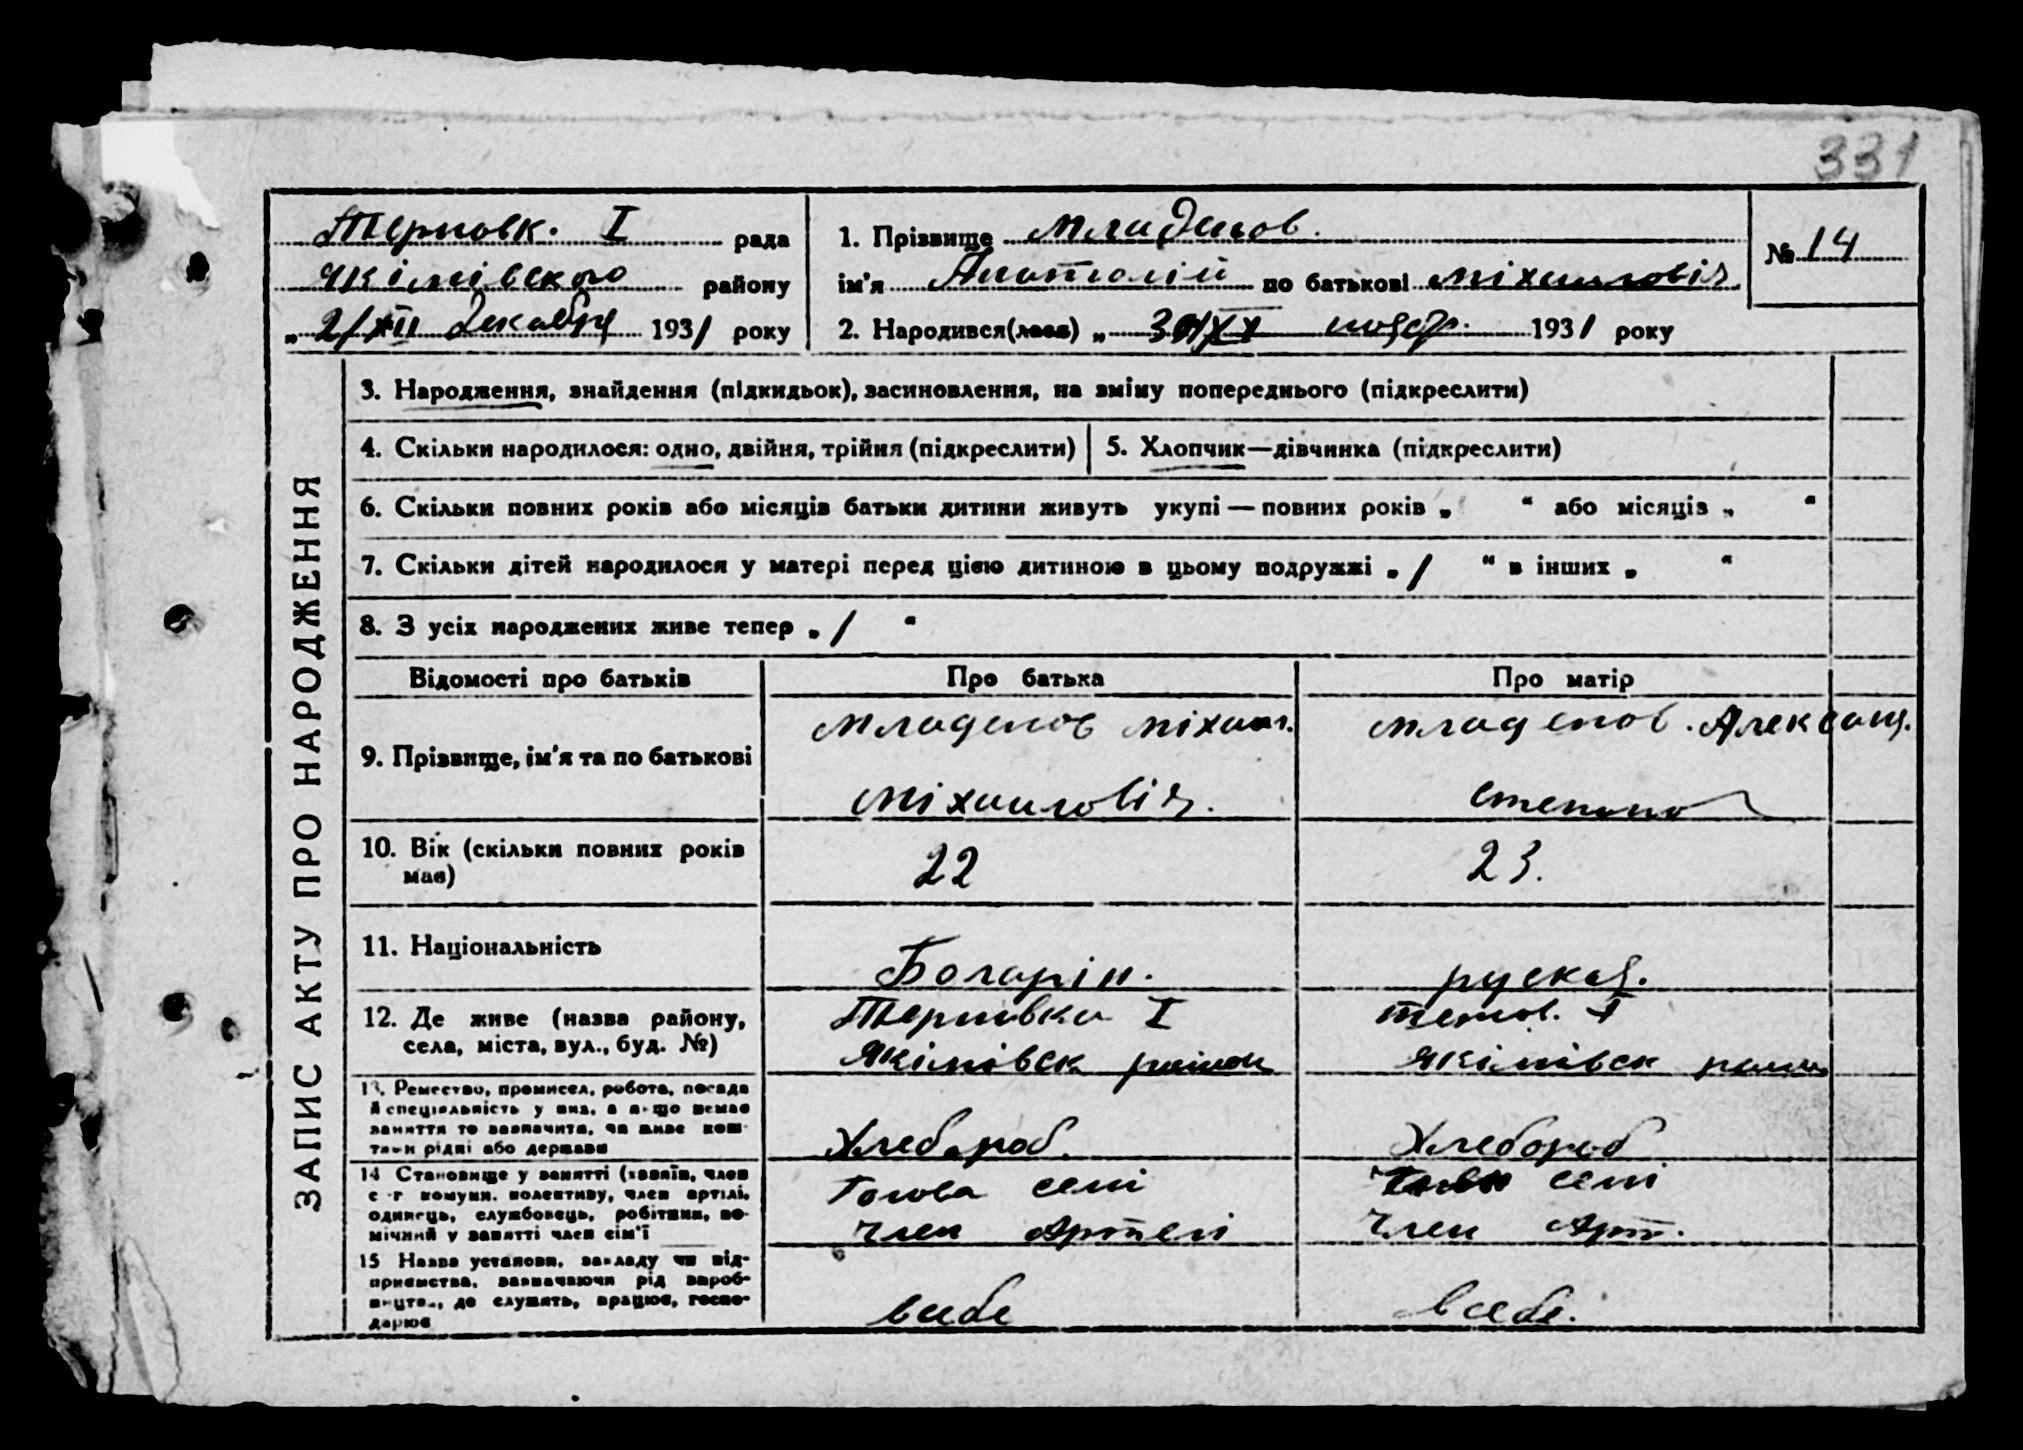 331
Терновк. I рада
Якімівского району
„ 2/XII Декабря 1931 року
1. Прізвище Младенов.
ім'я Анатолій по батькові Міхаиловіч
2. Народився(лася) „ 30/XI нояр. 1931 року
№ 14
ЗАПИС АКТУ ПРО НАРОДЖЕННЯ
3. Народження, знайдення (підкидьок), засиновлення, на зміну попереднього (підкреслити)
4. Скільки народилося: одно, двійня, трійня (підкреслити)
5. Хлопчик—дівчинка (підкреслити)
6. Скільки повних років або місяців батьки дитини живуть укупі — повних років „ “ або місяців „ “
7. Скільки дітей народилося у матері перед цією дитиною в цьому подружжі „ / “ в інших „ “
8. З усіх народжених живе тепер „ / “
Відомості про батьків Про батька Про матір
9. Прізвище, ім'я та по батькові
Младенов Міхаил.
Міхаиловіч.
Младенов. Александ.
Степано
10. Вік (скільки повних років
має)
22
23.
11. Національність
Болгарін.
руская.
12. Де живе (назва району,
села, міста, вул., буд. №)
Терновка I
Якімівск район
Якімівск район
13. Ремество, промисел, робота, посада
й спеціяльність у ній, а якщо немає
заняття то зазначити, чи живе кош-
том рідні або держави
Хлебороб.
Хлебороб
14 Становище у занятті (хазяїн, член
с-г комуни, колективу, член артілі,
одинець, службовець, робітник, по-
мічний у занятті член сім'ї
Голова семі
Член Артелі
семі
Член Арт.
15 Назва установи, закладу чи під-
приємства, зазначаючи рід вироб-
ництва, де служить, працює, госпо-
дарює
всебе
всебе.